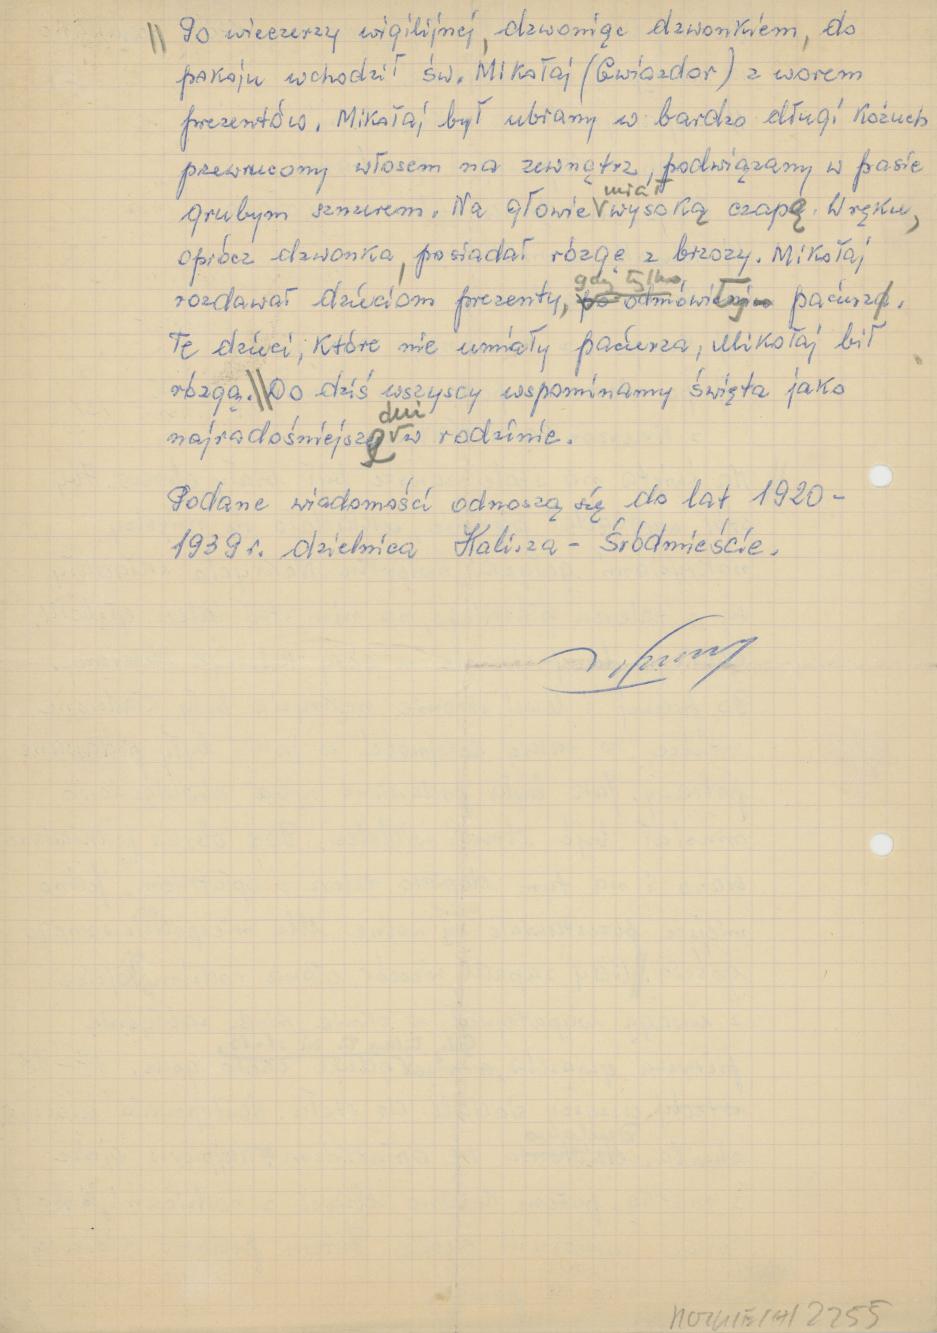 // Po wieczerzy wigilijnej, dzwoniąc dzwonkiem, do
pokoju wchodził św. Mikołaj (Gwiazdor) z worem
prezentów. Mikołaj był ubrany w bardzo długi kożuch
przewrucony włosem na zewnątrz, podwiązany w pasie
miał
grubym sznurem. Na głowie wysoką czapę. W ręku,
oprócz dzwonka, posiadał rózgę z brzozy. Mikołaj
gdy tylko
rozdawał dzieciom prezenty, po odmówieniu pacierza.
Te dzieci, które nie umiały pacierza, Mikołaj bił
rózgą. // Do dziś wszyscy wspominamy święta jako
dni
najradośniejsze w rodzinie.
Podane wiadomości odnoszą się do lat 1920-
1939 r. dzielnica Kalisza - Śródmieście.
2255